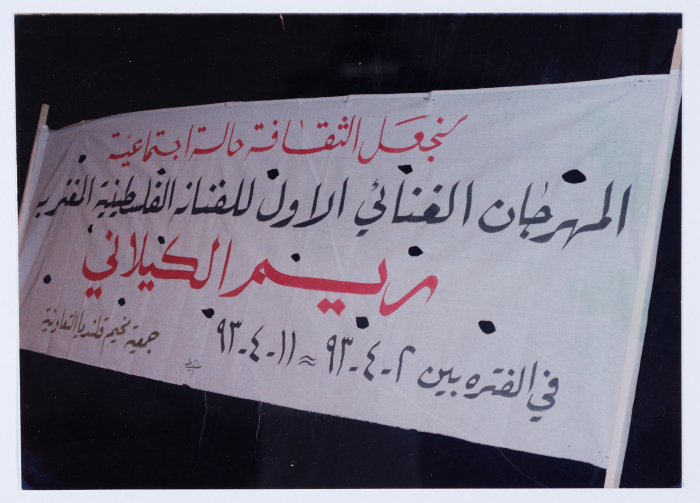 لنجعل الثقافة حالة اجتماعية
المهرجان الغنائي الاول للفنانه الفلسطينية المغتربه
ريم الكيلاني
في الفتره بين ٢-٤-٩٣ ≈ ١١-٤-٩٣
جمعية مخيم قلنديا التعاونية